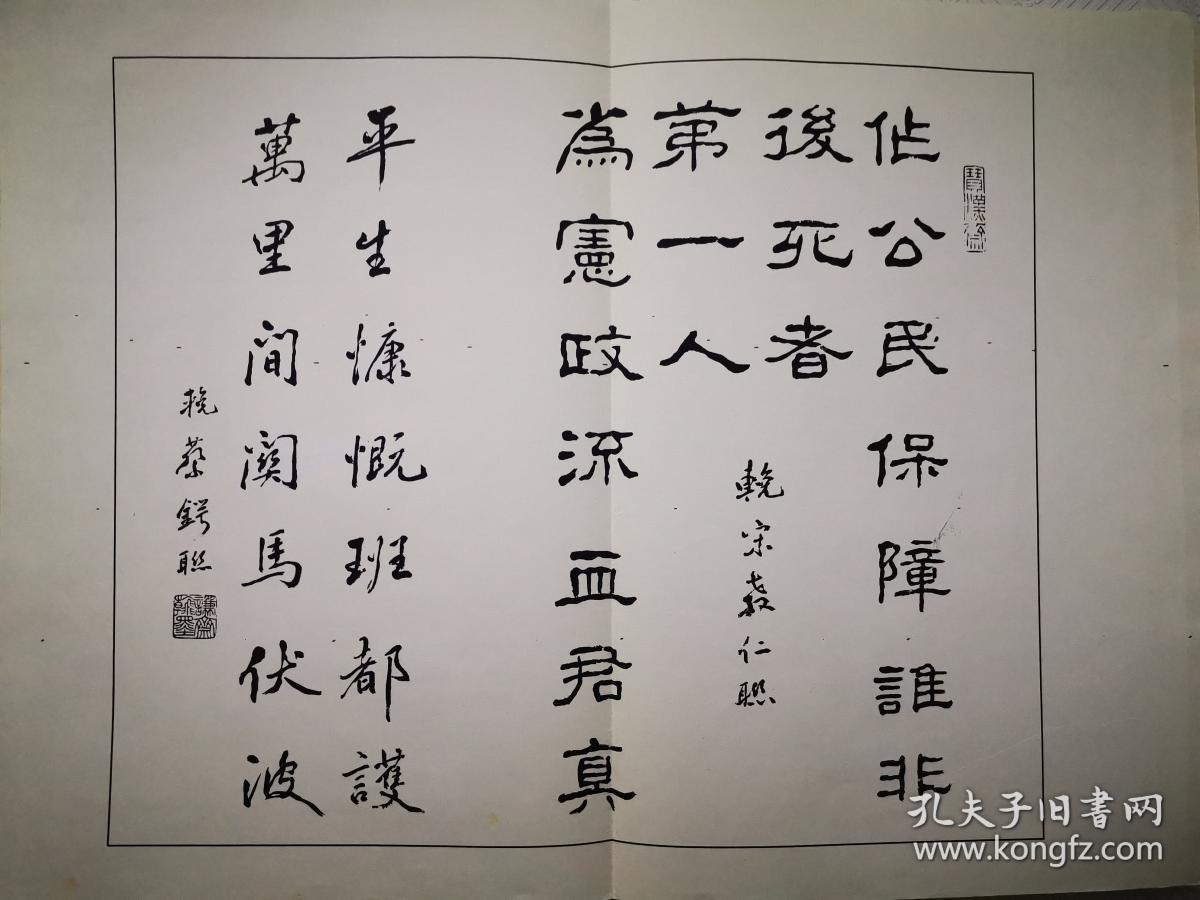 作公民保障誰非
後死者
為憲政流血君真
第一人
輓宋教仁聯
平生慷慨班都護
萬里間關馬伏波
輓蔡鍔聯
孔夫子旧书网
www.kongfz.com